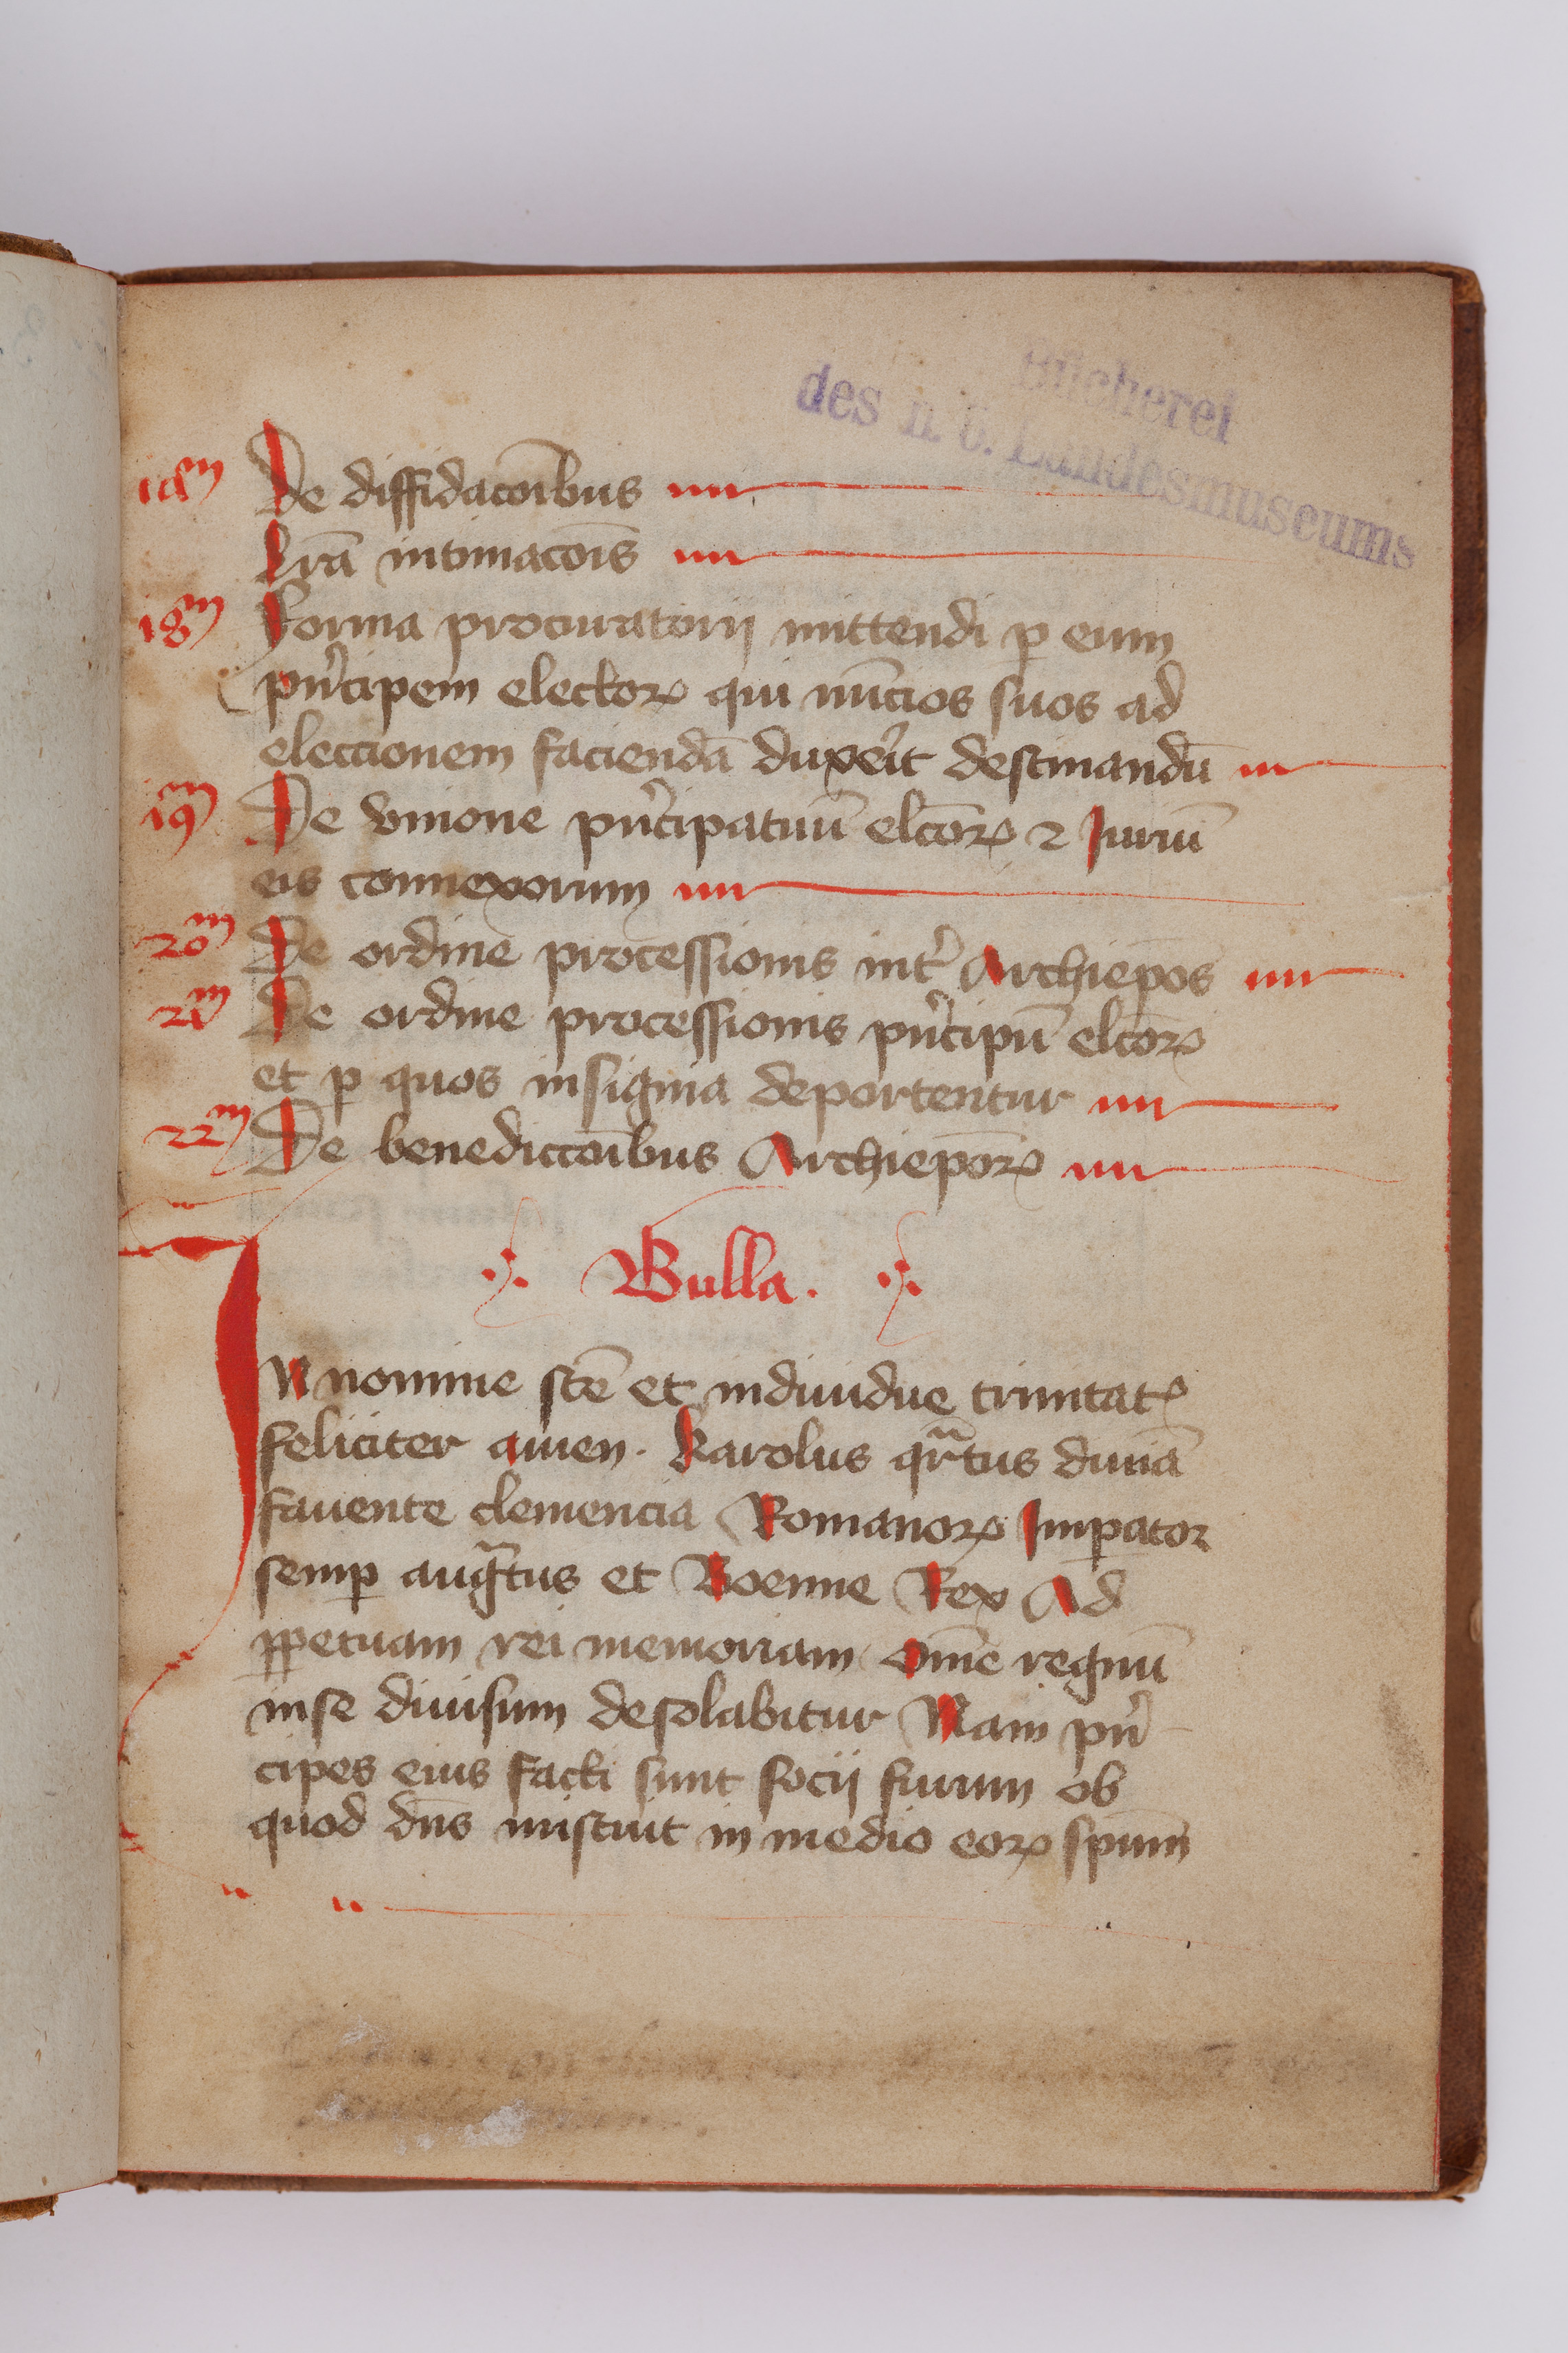 Bücherei
des n. ö. Landesmuseums
17m De diffidacōibus
Lrā intimacōis
18m Forma procuratorij mittendi p eum
pⁱncipem elector℞ qui nūcios suos ad
eleccionem faciendā duxeīt destinandū
19m De vnione pⁱncipatuū elcōr℞ ⁊ Iuriū
eis connexorum
20m De ordine processionis int̉ Archiep̄os
21m De ordine processionis pⁱncipū elcōr℞
et p quos insignia deportentur
22m De benediccōibus Archiep̄or℞
Bulla.
IN nomine sc̄e et indiuidue trinitat℞
feliciter amen. Karolus qᵃrtus diuīa
fauente clemencia Romanor℞ Imꝑator
semꝑ augᵃtus et Boemie Rex Ad
ꝑpetuam rei memoriam Om̄e regnū
inse diuisum desolabitur Nam pⁱn
cipes eius facti sunt socij furum ob
quod dn̄s miscuit in medio eor℞ sp̄um